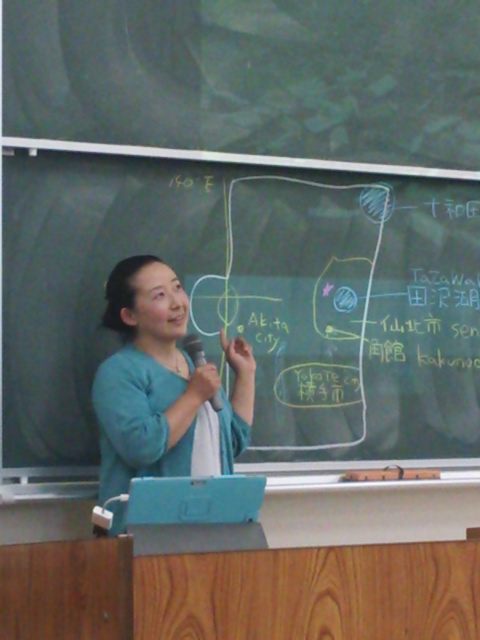 140°E
十和田
TaZaWa
田沢湖
Akita
City
仙北市 sen
角館 kakuno
Yokote city
横手市